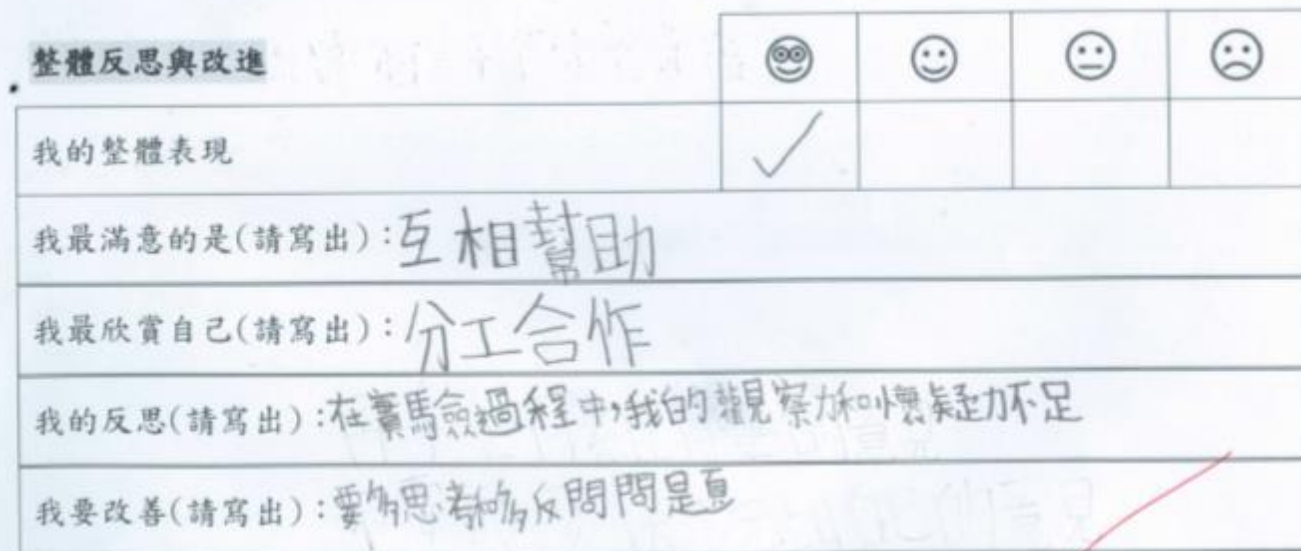 整體反思與改進
我的整體表現
我最滿意的是(請寫出)：互相幫助
我最欣賞自己(請寫出)：分工合作
我的反思(請寫出)：在實驗過程中，我的觀察力和懷疑力不足
我要改善(請寫出)：要多思考和多反問問題